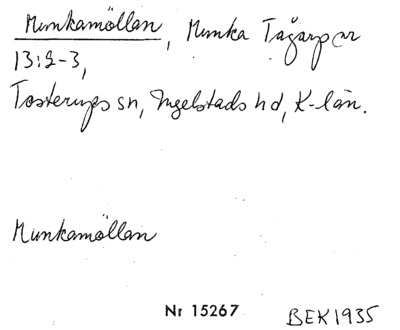 Munkamöllan, Munka Tågarp nr
13:2-3,
Tosterups sn, Ingelstads hd, K-län.
Munkamöllan
Nr 15267
BEK1935